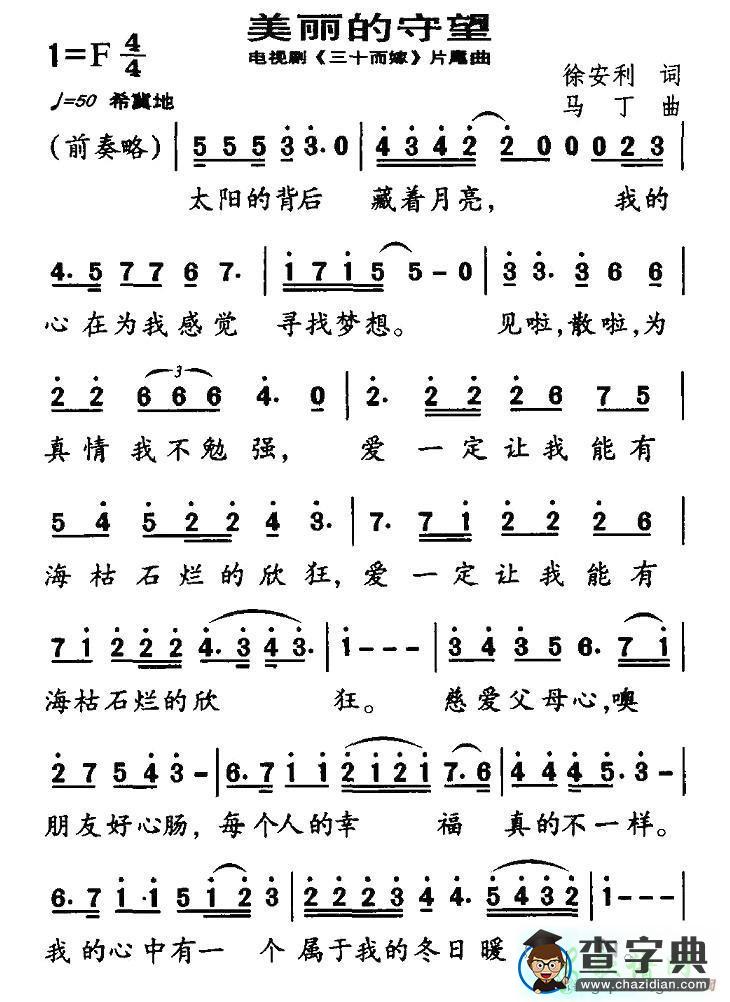 美丽的守望
电视剧《三十而嫁》片尾曲
1=F 4/4
♩=50 希冀地
徐安利 词
马丁 曲
(前奏略) | 5 5 5 3 3· 0 | 4 3 4 2 2 0 0 0 2 3 |
太阳的背后 藏着月亮, 我的
4· 5 7 7 6 7· | 1 7 1 5 5 - 0 | 3 3· 3 6 6 |
心在为我感觉 寻找梦想。 见啦,散啦,为
2 2 6 6 6 4· 0 | 2· 2 2 2 6 7 5 |
真情我不勉强, 爱一定让我能有
5 4 5 2 2 4 3· | 7· 7 1 2 2 2 6 |
海枯石烂的欣狂,爱一定让我能有
7 1 2 2 2 4· 3 4 3· | 1 - - - | 3 4 3 5 6· 7 1 |
海枯石烂的欣 狂。 慈爱父母心,噢
2 7 5 4 3 - | 6· 7 1 1 2 1 2 1 7· 6 | 4 4 4 5· 3· |
朋友好心肠,每个人的幸 福 真的不一样。
6· 7 1 · 1 5 1 2 3 | 3 2 2 2 3 4 4 5 4 3 2 | 1 - - - |
我的心中有一 个属于我的冬日暖
查字典
www.chazidian.com